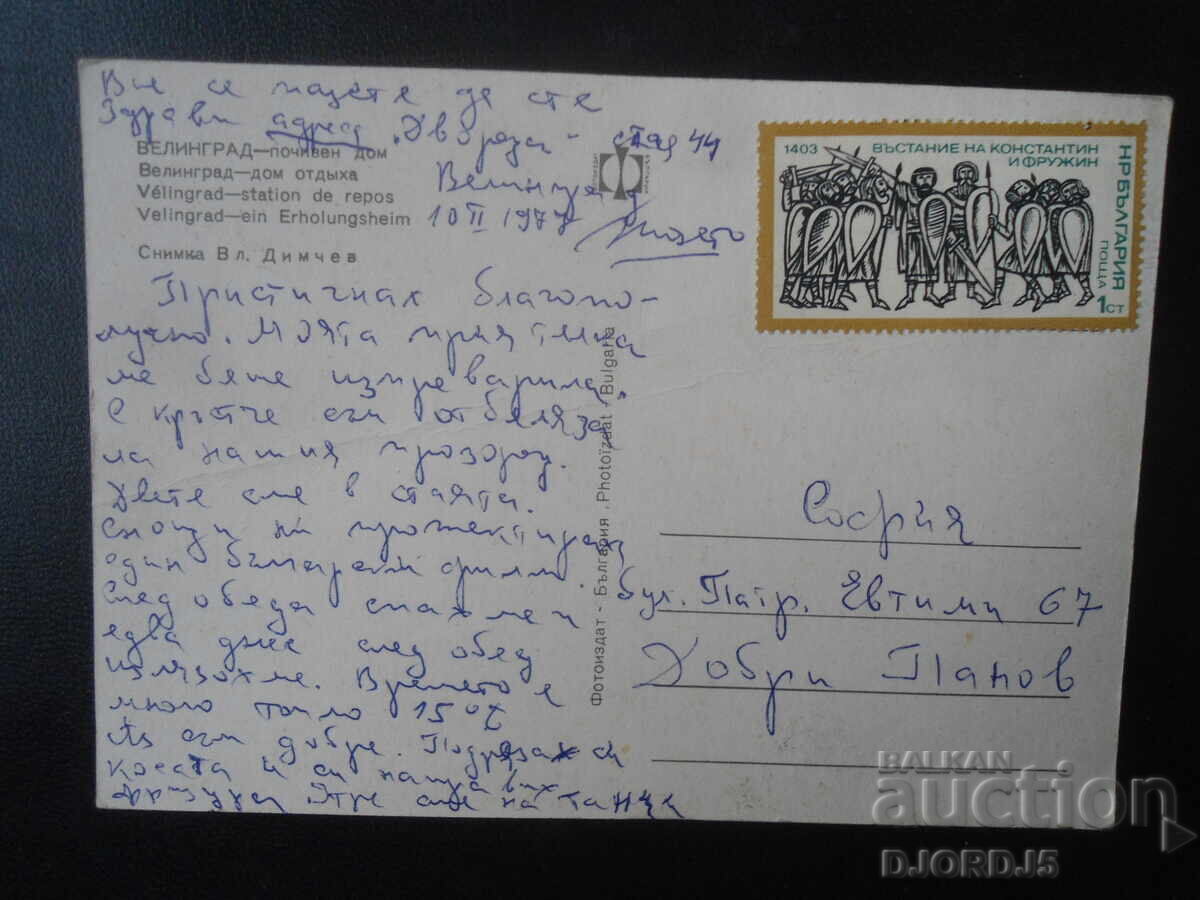 Вие се пазете да сте
здрави адрес „Двореца" - стая 44
Велинград
10 II 1977
ВЕЛИНГРАД—почивен дом
Велинград—дом отдыха
Vélingrad—station de repos
Velingrad—ein Erholungsheim
Снимка Вл. Димчев
Пристигнах благопо-
лучно. Моята приятелка
ме беше изпреварила.
С кръстче съм отбеляза
ла нашия прозорец.
Двете сме в стаята.
Снощи ни прожектираха
един български филм.
След обеда спахме и
едва днес след обед
излязохме. Времето е
много топло 15°
Аз съм добре. Подрязах си
косата и си направих
фризура. Утре сме на танци
Фотоиздат - България „Photoizdat - Bulgaria
1403 ВЪСТАНИЕ НА КОНСТАНТИН
И ФРУЖИН
НР БЪЛГАРИЯ
ПОЩА
1СТ
София
бул. Патр. Евтими 67
Добри Панов
BALKAN
auction
DJORDJ5